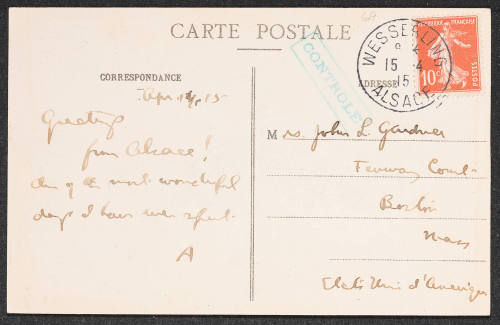 CARTE POSTALE
CORRESPONDANCE
ADRESSE
RÉPUBLIQUE FRANÇAISE
10c
POSTES
WESSERLING
15 4
15
ALSACE
CONTROLE
Apr 15
Greetings
from Alsace!
One of the most wonderful
days I have ever spent.
A
Mrs. John L. Gardner
Fenway Court
Boston
Mass
Etats Unis d'Amerique